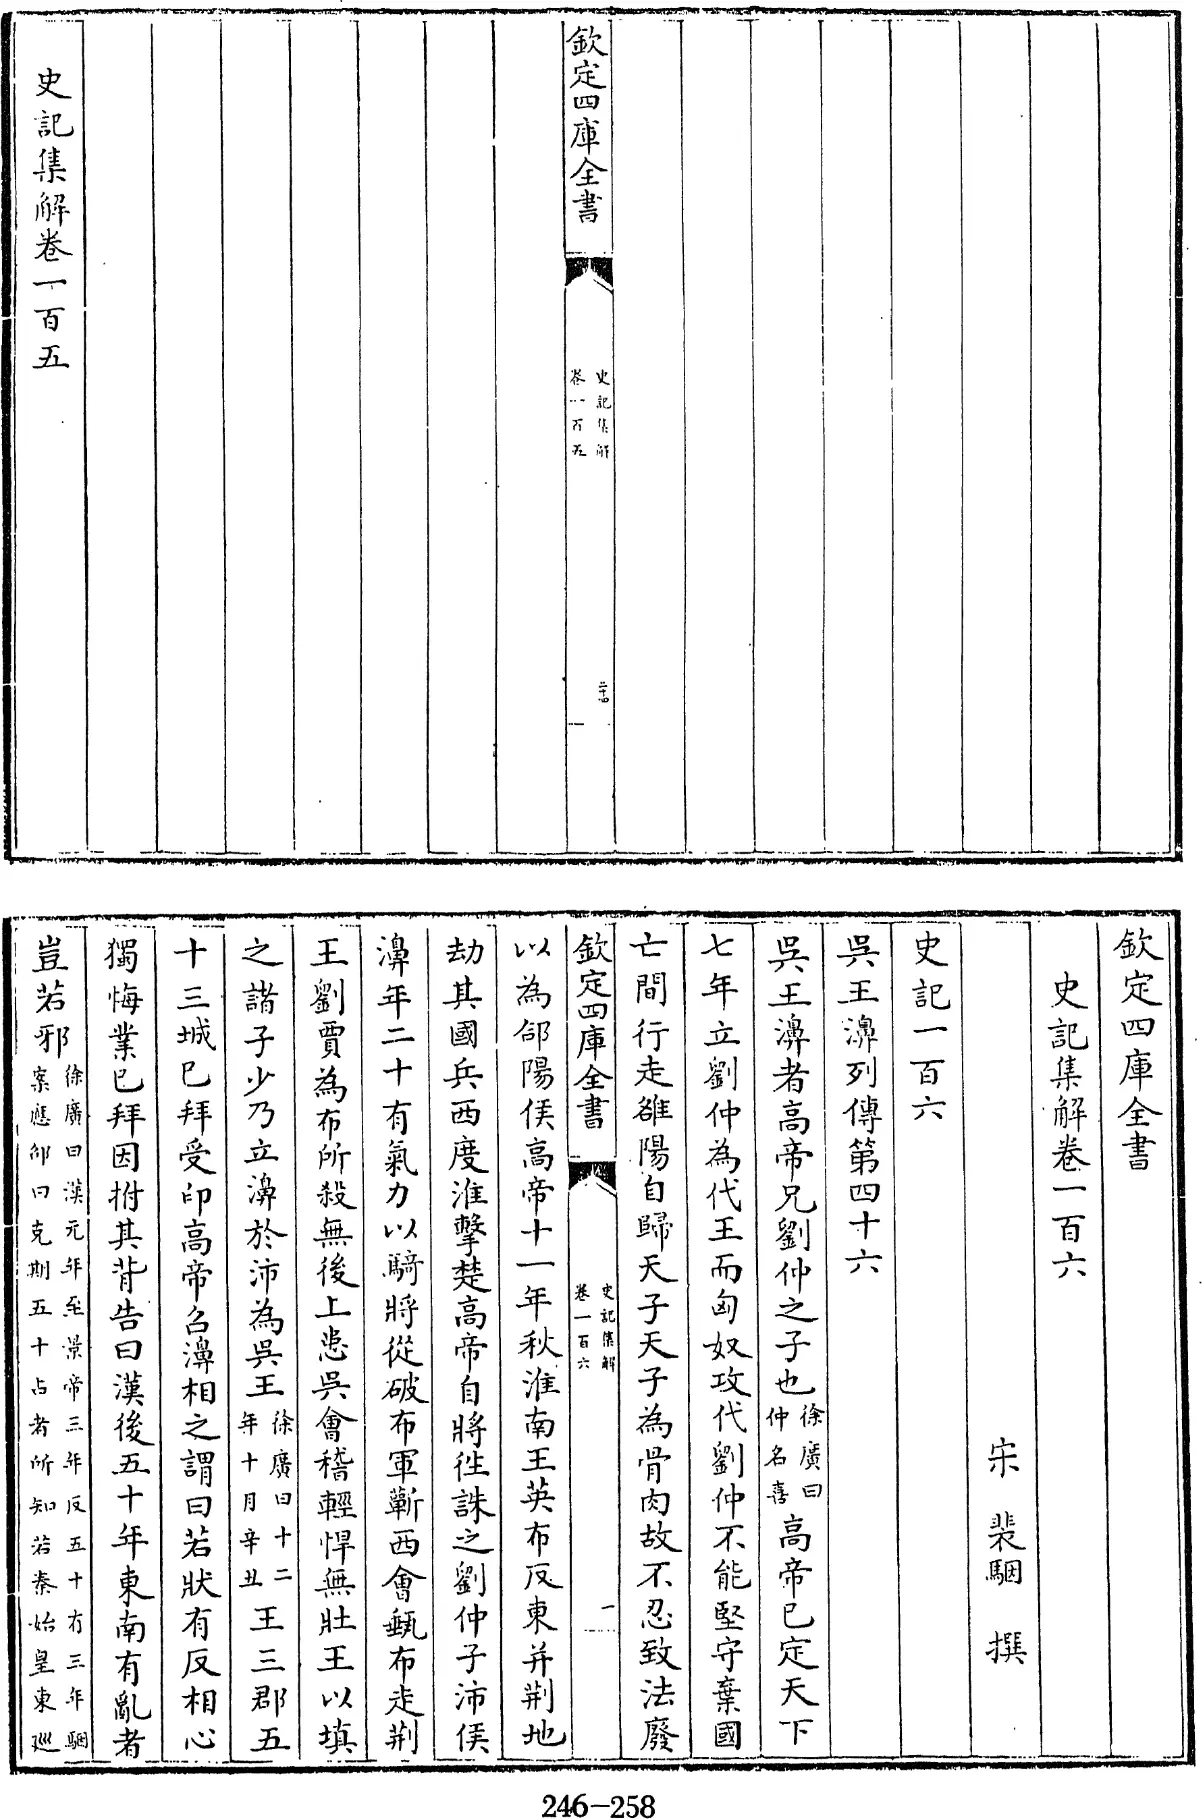 欽定四庫全書
史記集解
卷一百五
二十四
史記集解卷一百五
欽定四庫全書
史記集解卷一百六
宋 裴駰 撰
史記一百六
吳王濞列傳第四十六
吳王濞者高帝兄劉仲之子也徐廣曰仲名喜高帝已定天下
七年立劉仲為代王而匈奴攻代劉仲不能堅守棄國
亡間行走雒陽自歸天子天子為骨肉故不忍致法廢
欽定四庫全書
史記集解
卷一百六
一
以為郃陽侯高帝十一年秋淮南王英布反東并荆地
劫其國兵西度淮擊楚高帝自將徃誅之劉仲子沛侯
濞年二十有氣力以騎將從破布軍蘄西會甀布走荆
王劉賈為布所殺無後上患吳會稽輕悍無壯王以填
之諸子少乃立濞於沛為吳王徐廣曰十二年十月辛丑王三郡五
十三城已拜受印高帝召濞相之謂曰若狀有反相心
獨悔業已拜因拊其背告曰漢後五十年東南有亂者
豈若邪徐廣曰漢元年至景帝三年反五十有三年駰案應劭曰克期五十占者所知若秦始皇東巡
246-258